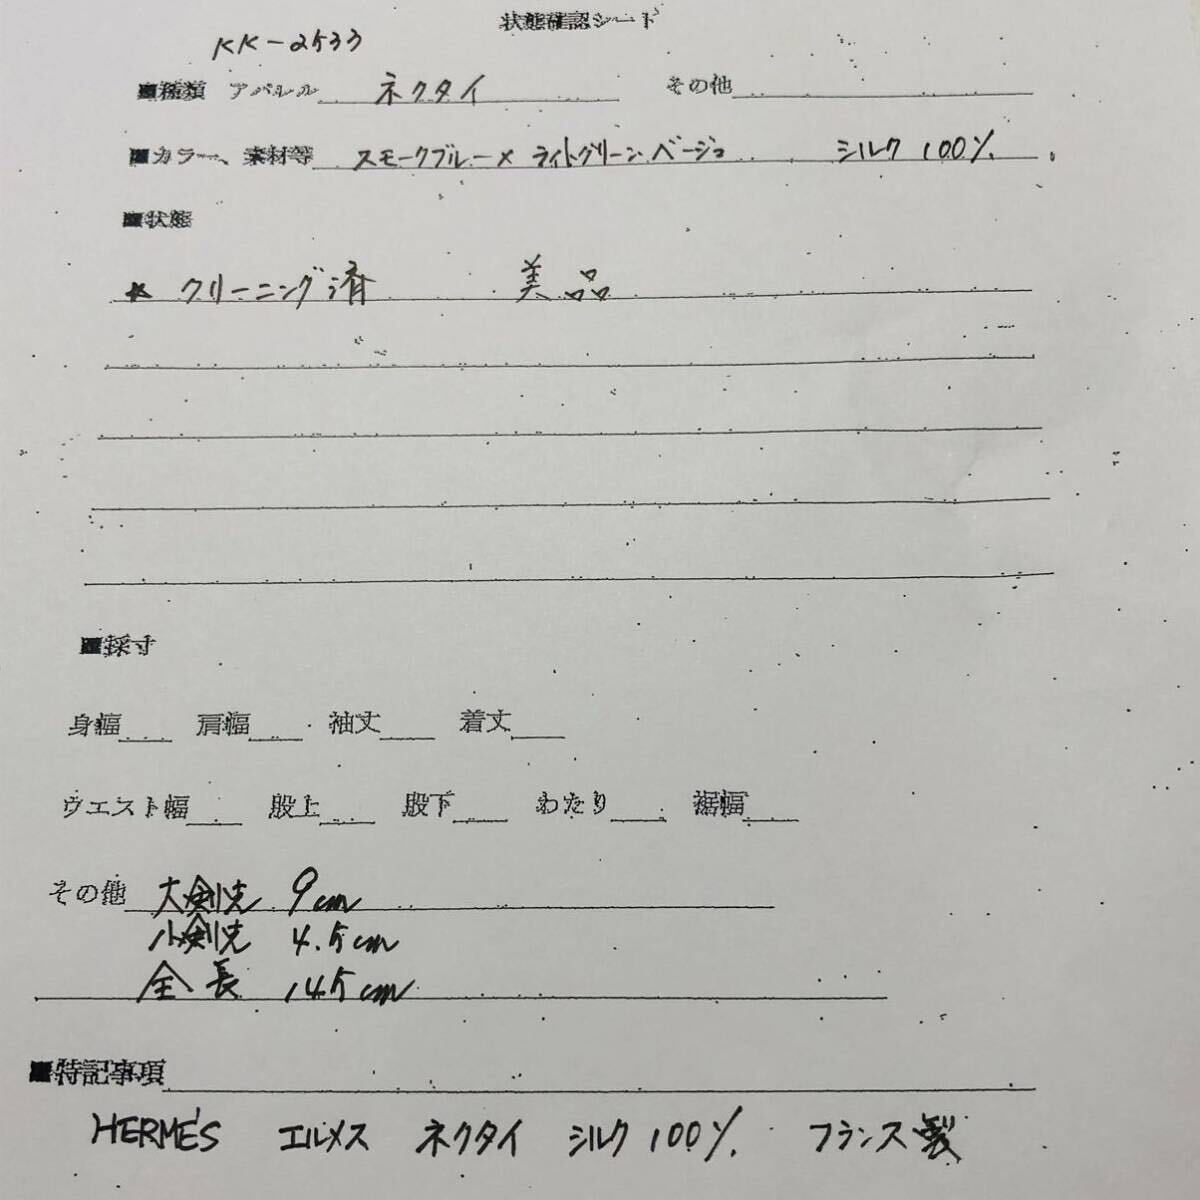 状態確認シート
KK-2533
■種類 アパレル ネクタイ その他
■カラー、素材等 スモークブルー×ライトグリーン、ベージュ シルク100%
■状態
★クリーニング済 美品
■採寸
身幅 肩幅 袖丈 着丈
ウエスト幅 股上 股下 わたり 裾幅
その他 大剣先 9cm
小剣先 4.5cm
全長 145cm
■特記事項
HERMÈS エルメス ネクタイ シルク100% フランス製